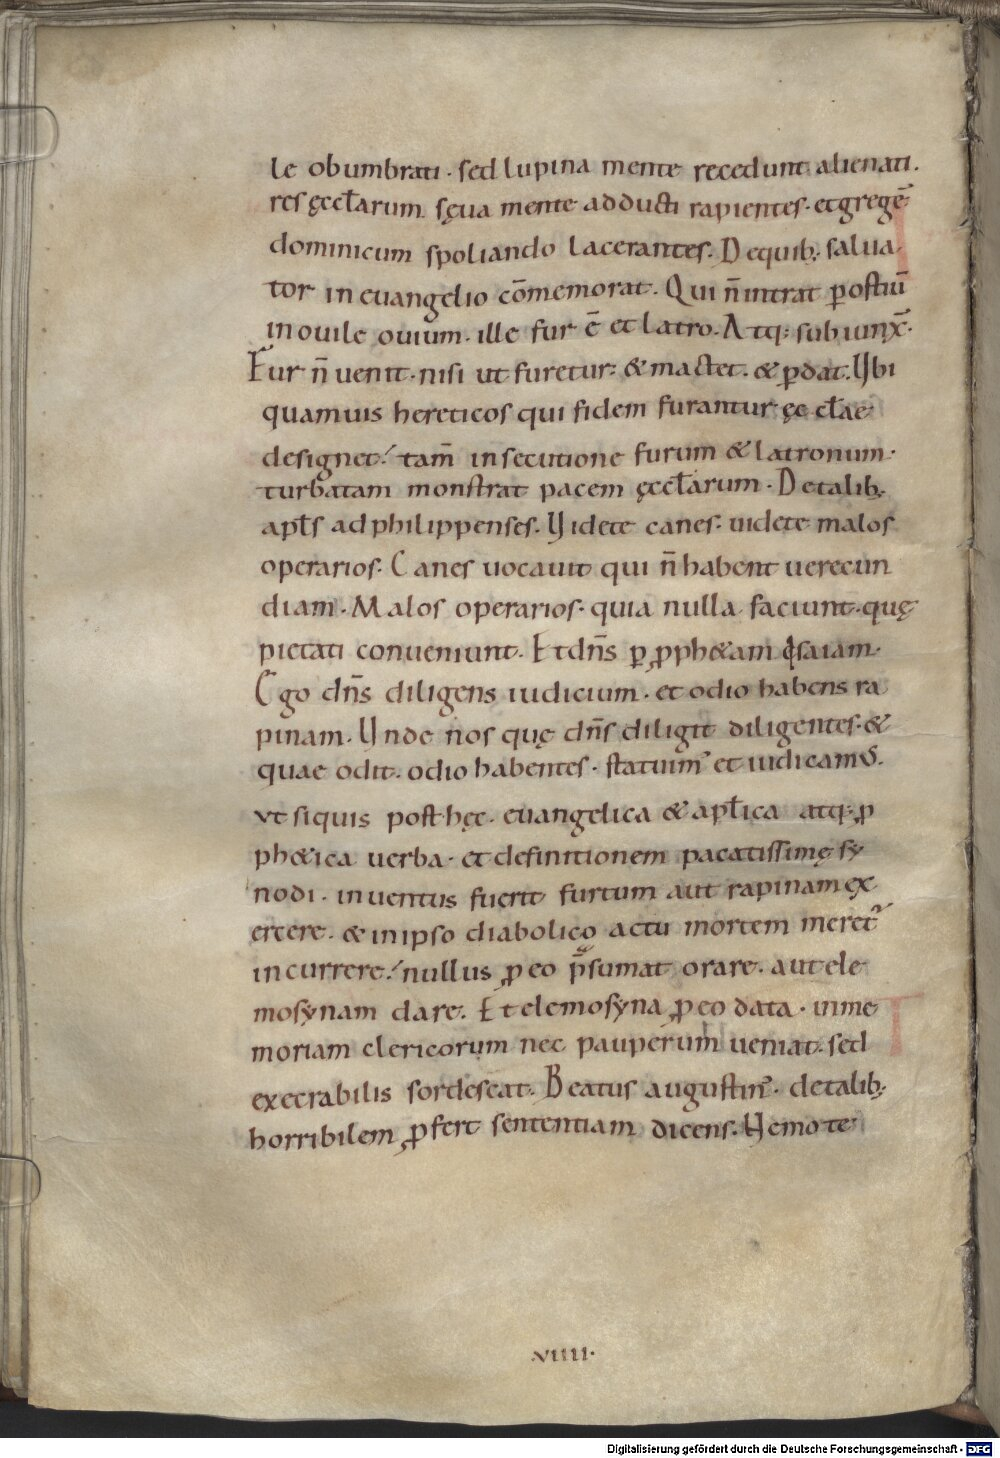 le obumbrati · sed lupina mente recedunt alienati.
res ęccl̄arum sęua mente adducti rapientes · et gregē
dominicum spoliando lacerantes. De quib; salua
tor in euangelio cōmemorat. Qui n̄ intrat ꝑ ostiū
in ouile ouium · ille fur ē et latro. Atq; subiunx̄.
Fur n̄ uenit · nisi ut furetur · & mactet · & ꝑdat. Ubi
quamuis hereticos qui fidem furantur ęccl̄ae
designet · tam̄ insecutione furum & latronum ·
turbatam monstrat pacem ęccl̄arum · De talib;
apl̄s ad philippenses. Uidete canes · uidete malos
operarios. Canes uocauit qui n̄ habent uerecun
diam · Malos operarios · quia nulla faciunt · quę
pietati conueniunt. Et dn̄s ꝑ ꝓph&am Isaiam ·
Ego dn̄s diligens iudicium · et odio habens ra
pinam. Unde nos quę dn̄s diligit diligentes · &
quae odit · odio habentes · statuim' et iudicamus.
ut siquis post hęc · euangelica & apl̄ica atq; ꝓ
ph&ica uerba · et definitionem pacatissimę sy
nodi · inuentus fuerit furtum aut rapinam ęx
ercere · & in ipso diabolico actu mortem meret̉
incurrere · nullus ꝓ eo p̄sumat orare · aut ele
mosynam dare. Et elemosyna ꝓ eo data · in me
moriam clericorum nec pauperum ueniat · sed
execrabilis sordescat. Beatus augustin' · de talib;
horribilem ꝓfert sententiam dicens. Nemo te
·VIIII·
Digitalisierung gefördert durch die Deutsche Forschungsgemeinschaft - DFG